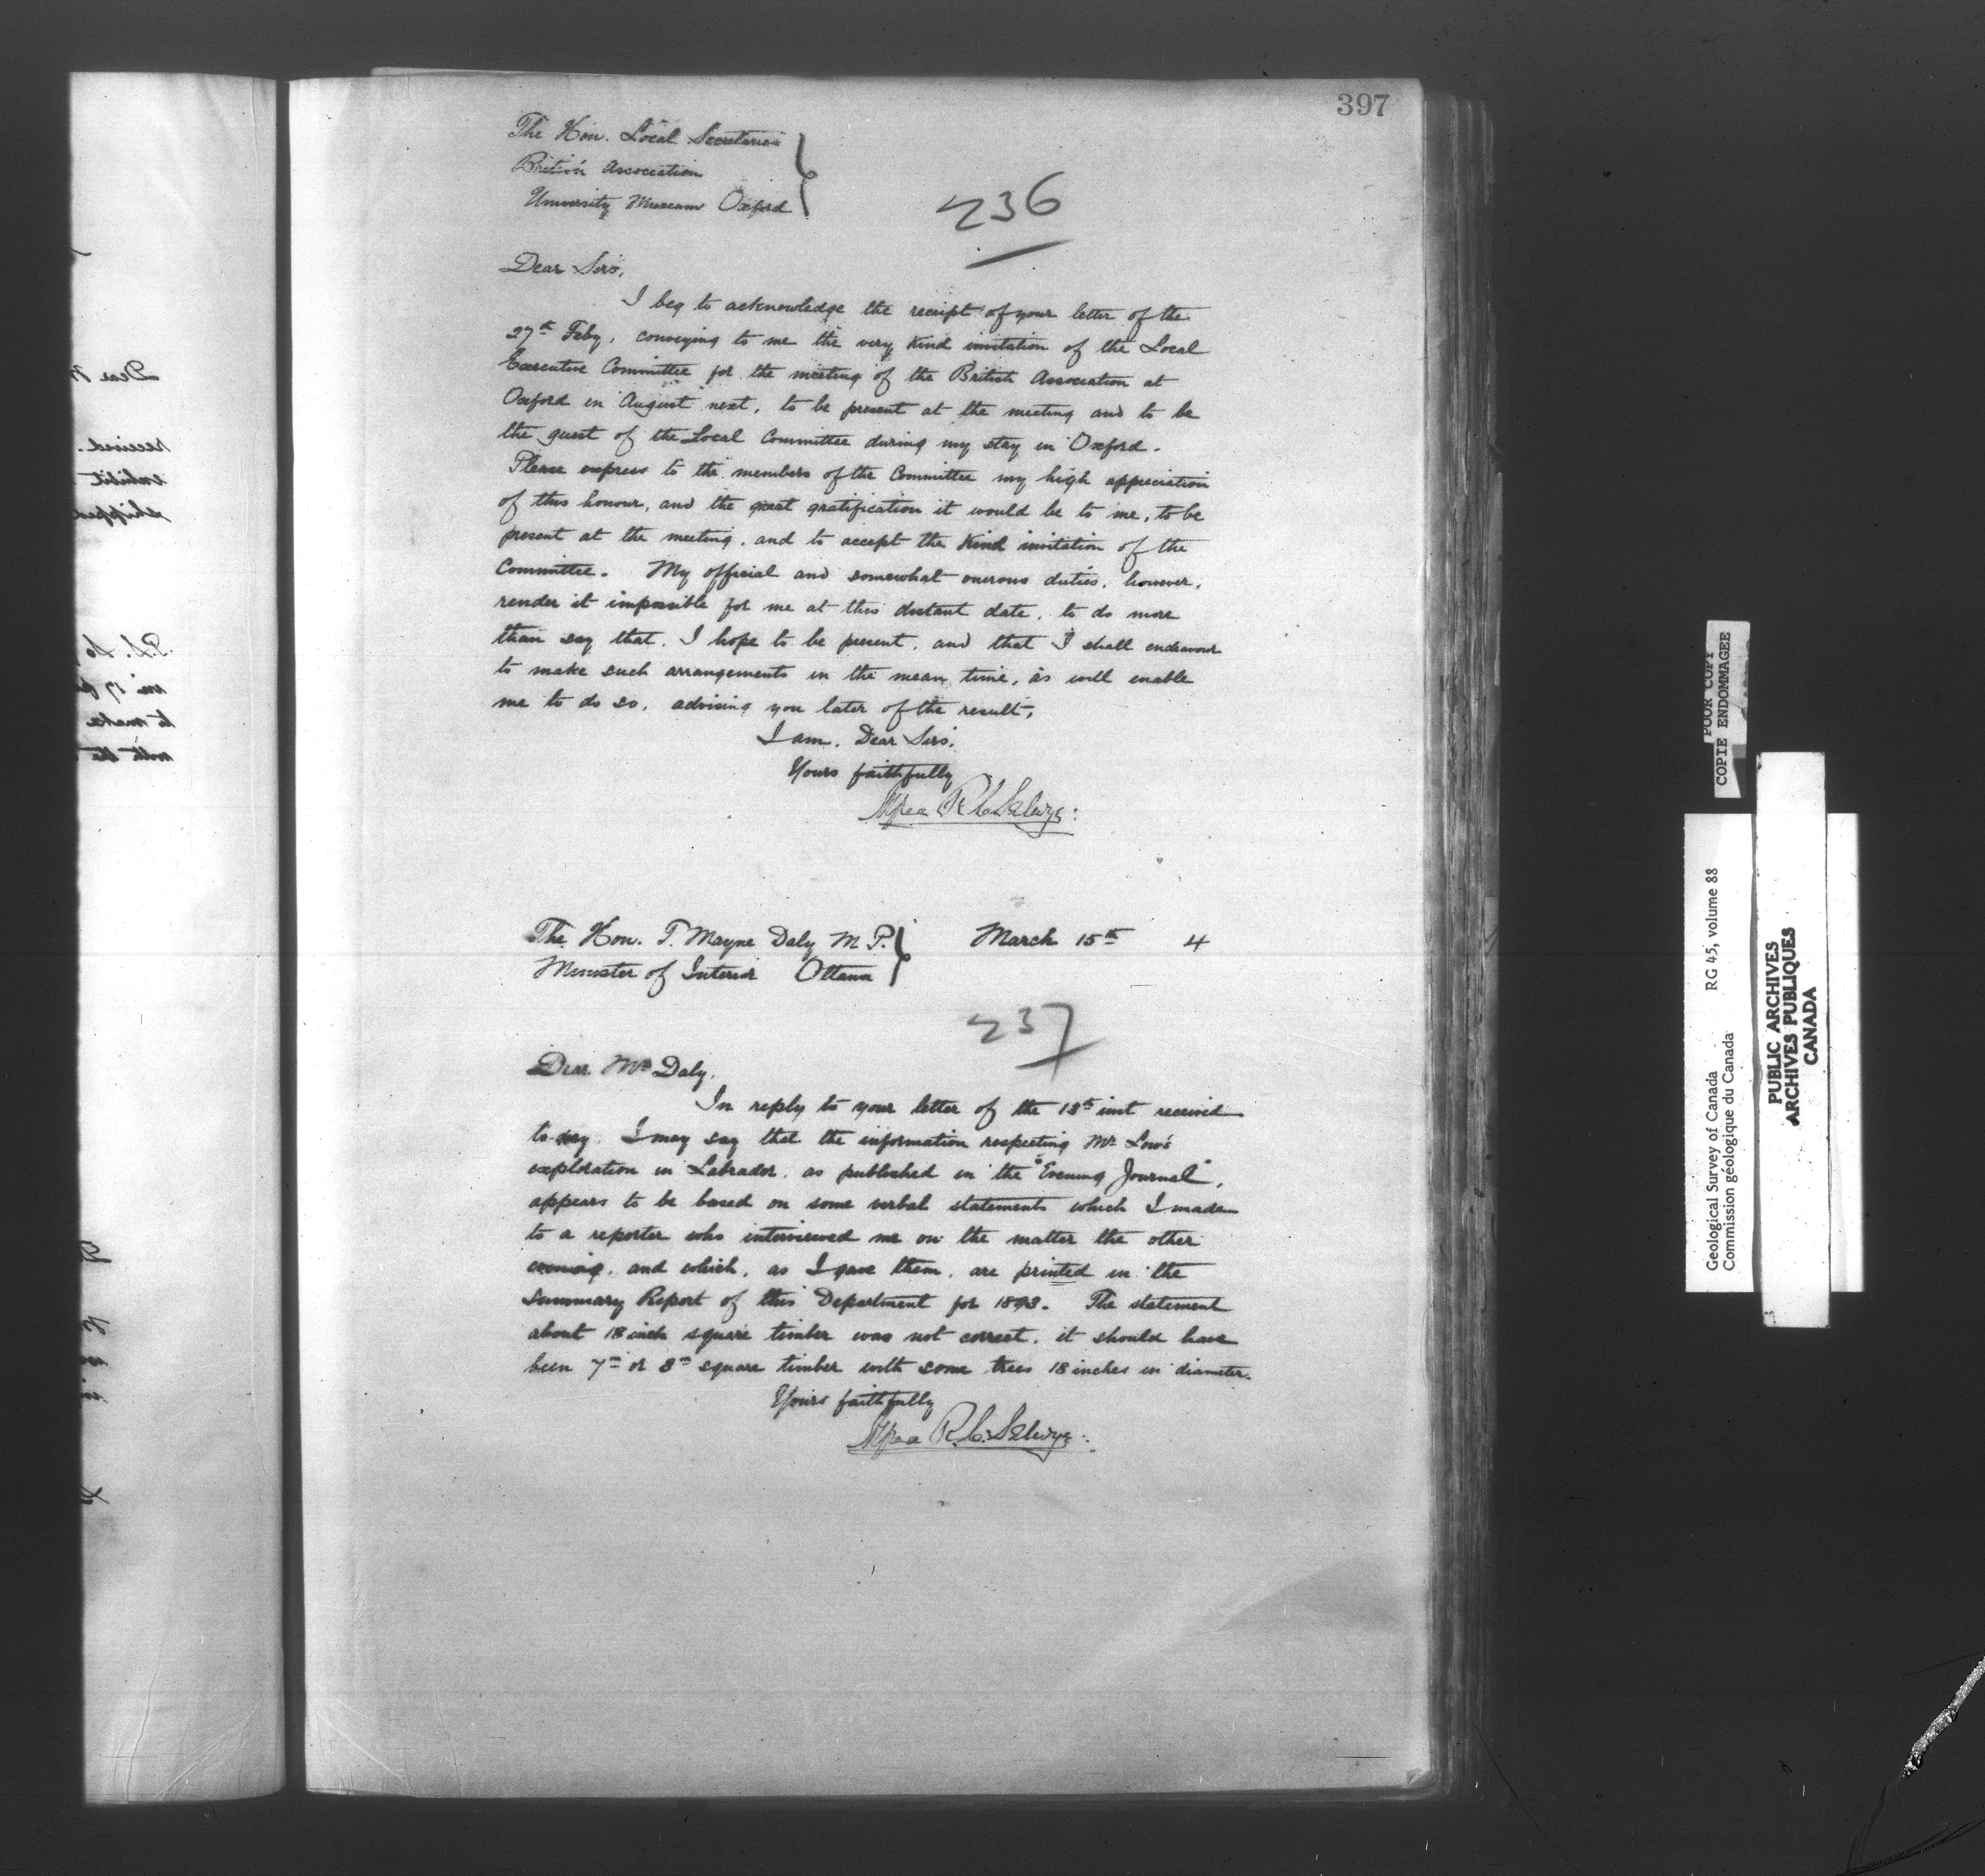 397
The Hon. Local Secretaries
British Association
University Museum Oxford
236
Dear Sirs,
I beg to acknowledge the receipt of your letter of the
27th Feby, conveying to me the very kind invitation of the Local
Executive Committee for the meeting of the British Association at
Oxford in August next, to be present at the meeting and to be
the guest of the Local Committee during my stay in Oxford.
Please express to the members of the Committee my high appreciation
of this honour, and the great gratification it would be to me, to be
present at the meeting, and to accept the kind invitation of the
Committee. My official and somewhat onerous duties, however,
render it impossible for me at this distant date, to do more
than say that, I hope to be present, and that I shall endeavour
to make such arrangements in the mean time, as will enable
me to do so, advising you later of the result,
I am, Dear Sirs,
Yours faithfully
Alfred R. C. Selwyn
The Hon. T. Mayne Daly M.P. March 15th 4
Minister of Interior Ottawa
237
Dear Mr Daly,
In reply to your letter of the 13th inst received
to-day. I may say that the information respecting Mr Low's
exploration in Labrador, as published in the "Evening Journal",
appears to be based on some verbal statements which I made
to a reporter who interviewed me on the matter the other
evening, and which, as I gave them, are printed in the
Summary Report of this Department for 1893. The statement
about 18 inch square timber was not correct, it should have
been 7in or 8in square timber with some trees 18 inches in diameter.
Yours faithfully
Alfred R. C. Selwyn
Dear
received.
exhibit
shipped
P.S.
to make
with the
POOR COPY
COPIE ENDOMMAGEE
Geological Survey of Canada RG 45, volume 88
Commission géologique du Canada
PUBLIC ARCHIVES
ARCHIVES PUBLIQUES
CANADA